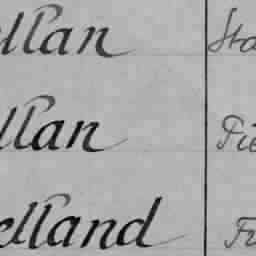 llan Sta
llan Pie
elland Fr